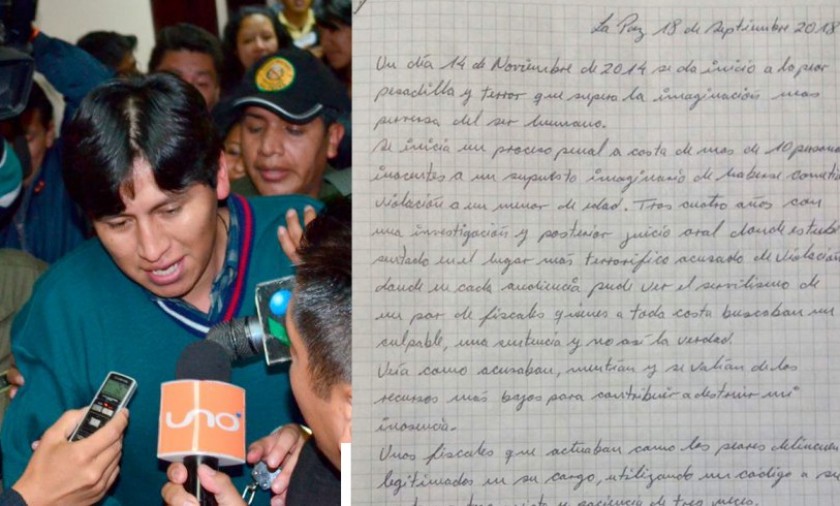 uno
La Paz 18 de septiembre 2018
Un día 14 de Noviembre de 2014 se da inicio a la peor
pesadilla y terror que supera la imaginación mas
perversa del ser humano.
Se inicia un proceso penal a costa de mas de 10 persona
inocentes a un supuesto imaginario de haberse cometi
violación a un menor de edad. Tras cuatro años con
una investigación y posterior juicio oral donde estuve
sentado en el lugar más terrorífico acusado de violación
donde en cada audiencia pude ver el servilismo de
un par de fiscales quienes a toda costa buscaban un
culpable, una sentencia y no así la verdad.
Veía como acusaban, mentían y se valían de los
recursos más bajos para contribuir a destruir mi
inocencia.
Unos fiscales que actuaban como los peores delincuen
legitimados en su cargo, utilizando un código a su
vista y paciencia de tres jueces.